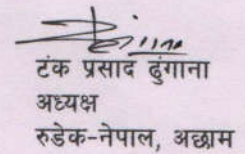 टंक प्रसाद ढुंगाना
अध्यक्ष
रुडेक-नेपाल, अछाम